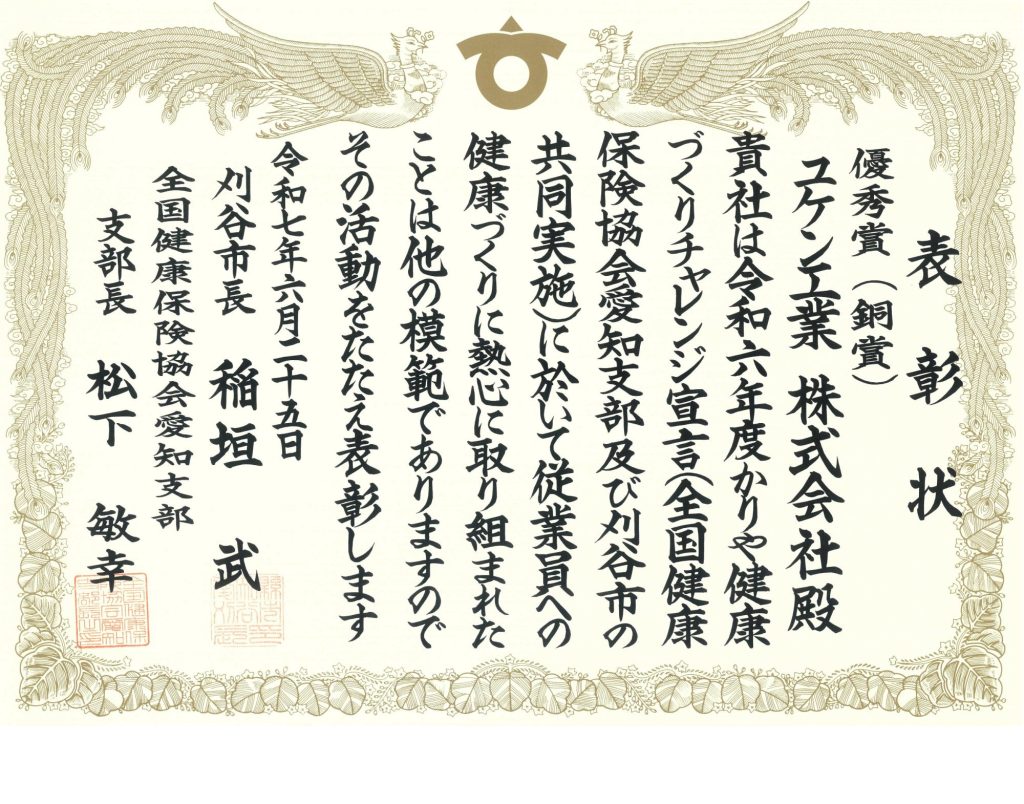 表彰状
優秀賞（銅賞）
ユケン工業 株式会社殿
貴社は令和六年度かりや健康
づくりチャレンジ宣言（全国健康
保険協会愛知支部及び刈谷市の
共同実施）に於いて従業員への
健康づくりに熱心に取り組まれた
ことは他の模範でありますので
その活動をたたえ表彰します
令和七年六月二十五日
刈谷市長 稲垣 武
全国健康保険協会愛知支部
支部長 松下 敏幸